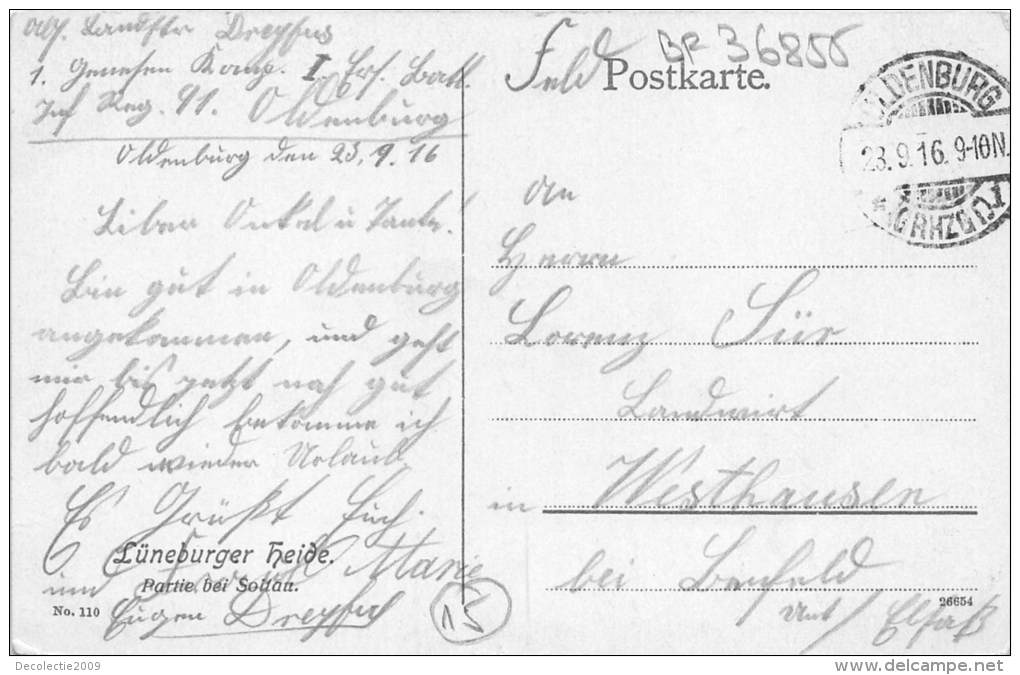 Abs. Landstr Dreyfus
1. Genesen Komp. I Ers. Batl.
Inf Reg. 91. Oldenburg
Oldenburg den 23.9.16
Liber Onkel u Tante!
Bin gut in Oldenburg
angekommen, und geht
mir bis jetzt noh gut
hoffendlich bekomme ich
bald wieder Urlaub.
Es Grüßt Euch
Marie
und
Eugen Dreyfus
Lüneburger Heide.
Partie bei Soltau.
No. 110
15
Feld Postkarte.
BF 36855
OLDENBURG
23.9.16.9-10N.
* (GRHZGT.) 1
An
Herrn
Lorenz Sür
Landwirt
in Westhausen
bei Benfeld
Unt/ Elsaß
26654
Decolectie2009
www.delcampe.net